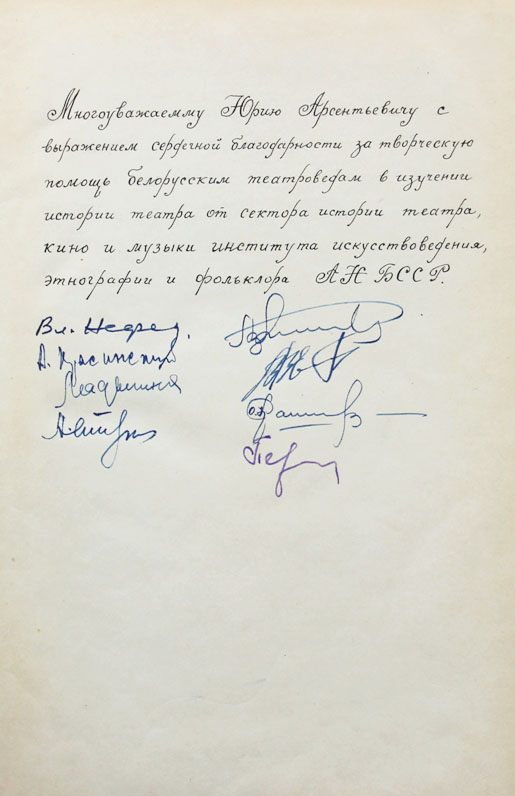 Многоуважаемму Юрию Арсентьевичу с
выражением сердечной благодарности за творческую
помощь белорусским театроведам в изучении
истории театра от сектора истории театра,
кино и музыки института искусствоведения,
этнографии и фольклора АН БССР.
Вл. Нефед.
А. Красинский